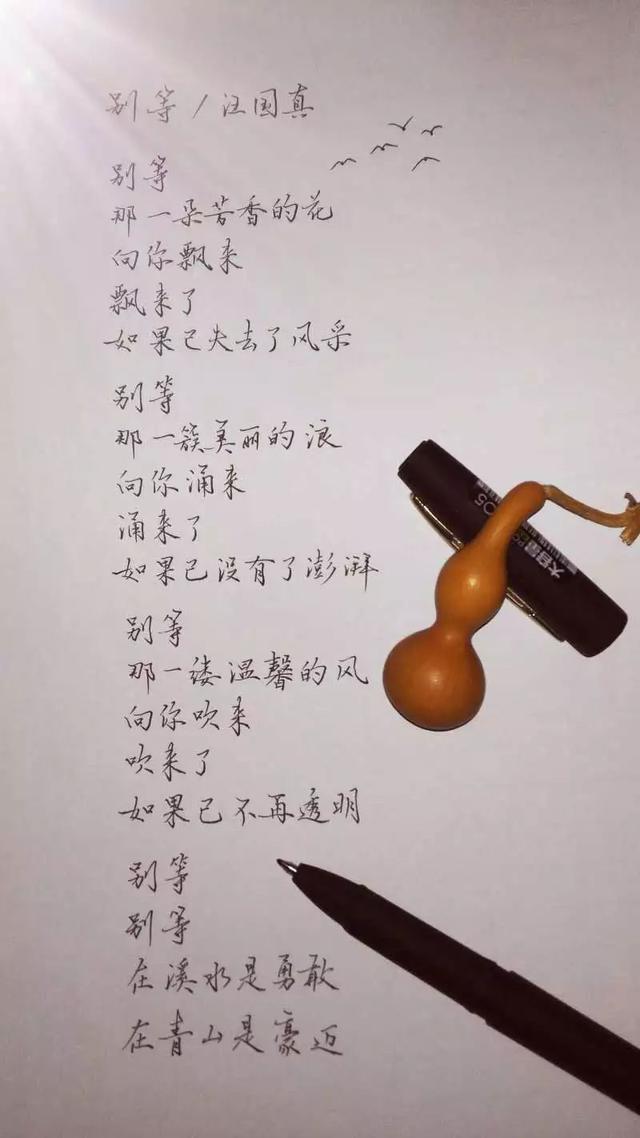 别等/汪国真
别等
那一朵芳香的花
向你飘来
飘来了
如果已失去了风采
别等
那一簇美丽的浪
向你涌来
涌来了
如果已没有了澎湃
别等
那一缕温馨的风
向你吹来
吹来了
如果已不再透明
别等
别等
在溪水是勇敢
在青山是豪迈
大容量